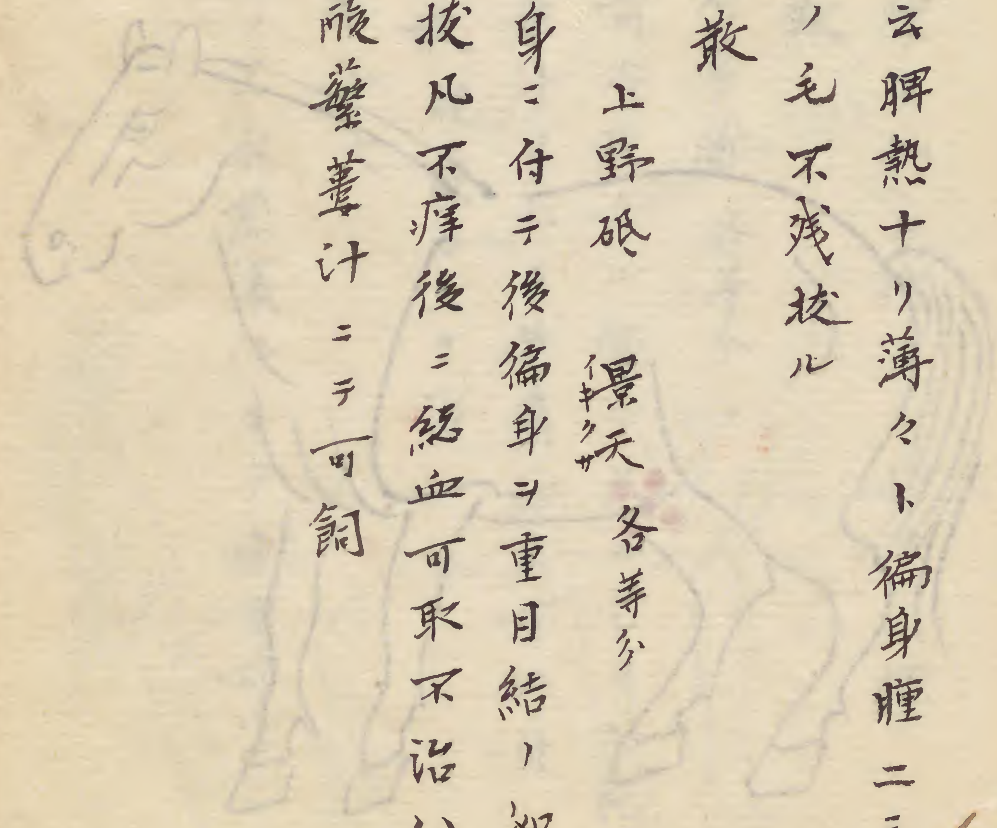 云脾熱十リ薄々ト徧身腫二三
ノ毛不残拔ル
散
上野砥 景天 各等分
イキクサ
身ニ付テ後徧身ヲ重目結ノ如
拔凡不痒後ニ総血可取不治ハ
酸蘩蔞汁ニテ可飼